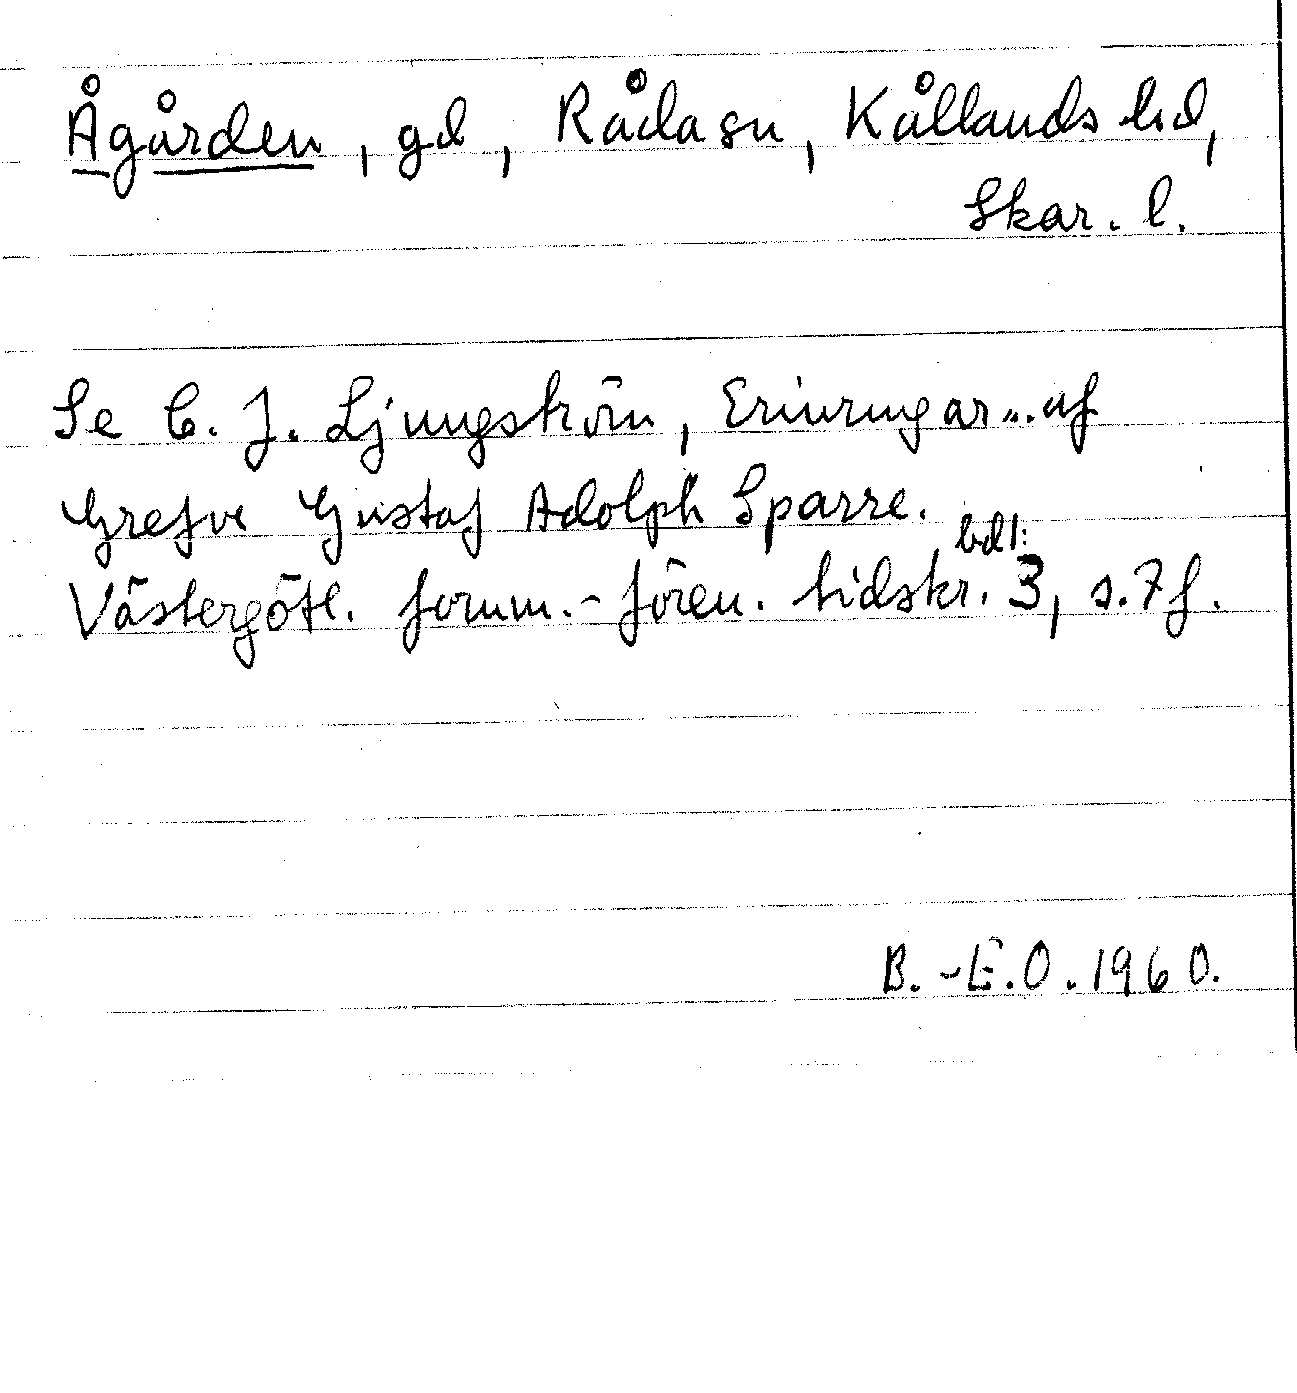 Ågården, gd, Råda sn, Kållands hd,
Skar. l.
Se C. J. Ljungström, Erinringar ... af
Grefve Gustaf Adolph Sparre.
Västergötl. fornm.-fören. tidskr. bd 1: 3, s. 7 f.
B.-E.O. 1960.